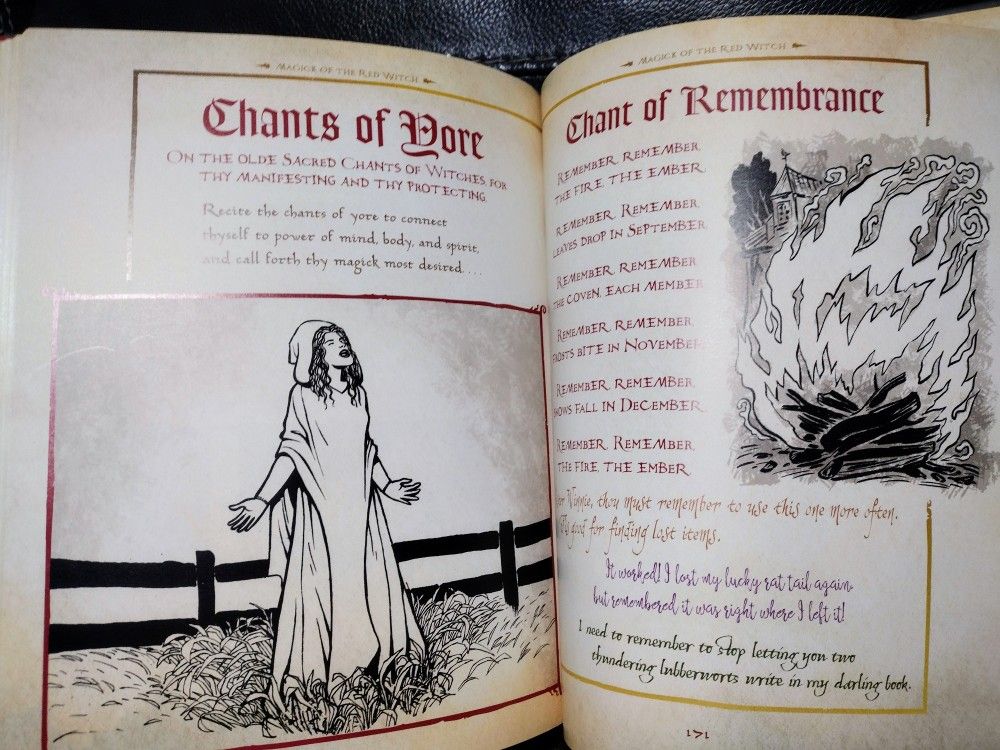 Magick of the Red Witch
Chants of Yore
On the olde Sacred Chants of Witches, for
thy manifesting and thy protecting.
Recite the chants of yore to connect
thyself to power of mind, body, and spirit,
and call forth thy magick most desired. . . .
Magick of the Red Witch
Chant of Remembrance
Remember, remember,
the fire, the ember.
Remember, Remember,
leaves drop in September.
Remember, remember,
the coven, each member.
Remember, remember,
frosts bite in November.
Remember, remember,
snows fall in December.
Remember, Remember,
the fire, the ember.
Winnie, thou must remember to use this one more often.
good for finding lost items.
It worked! I lost my lucky rat tail again
but remembered it was right where I left it!
I need to remember to stop letting you two
thundering lubberworts write in my darling book.
171